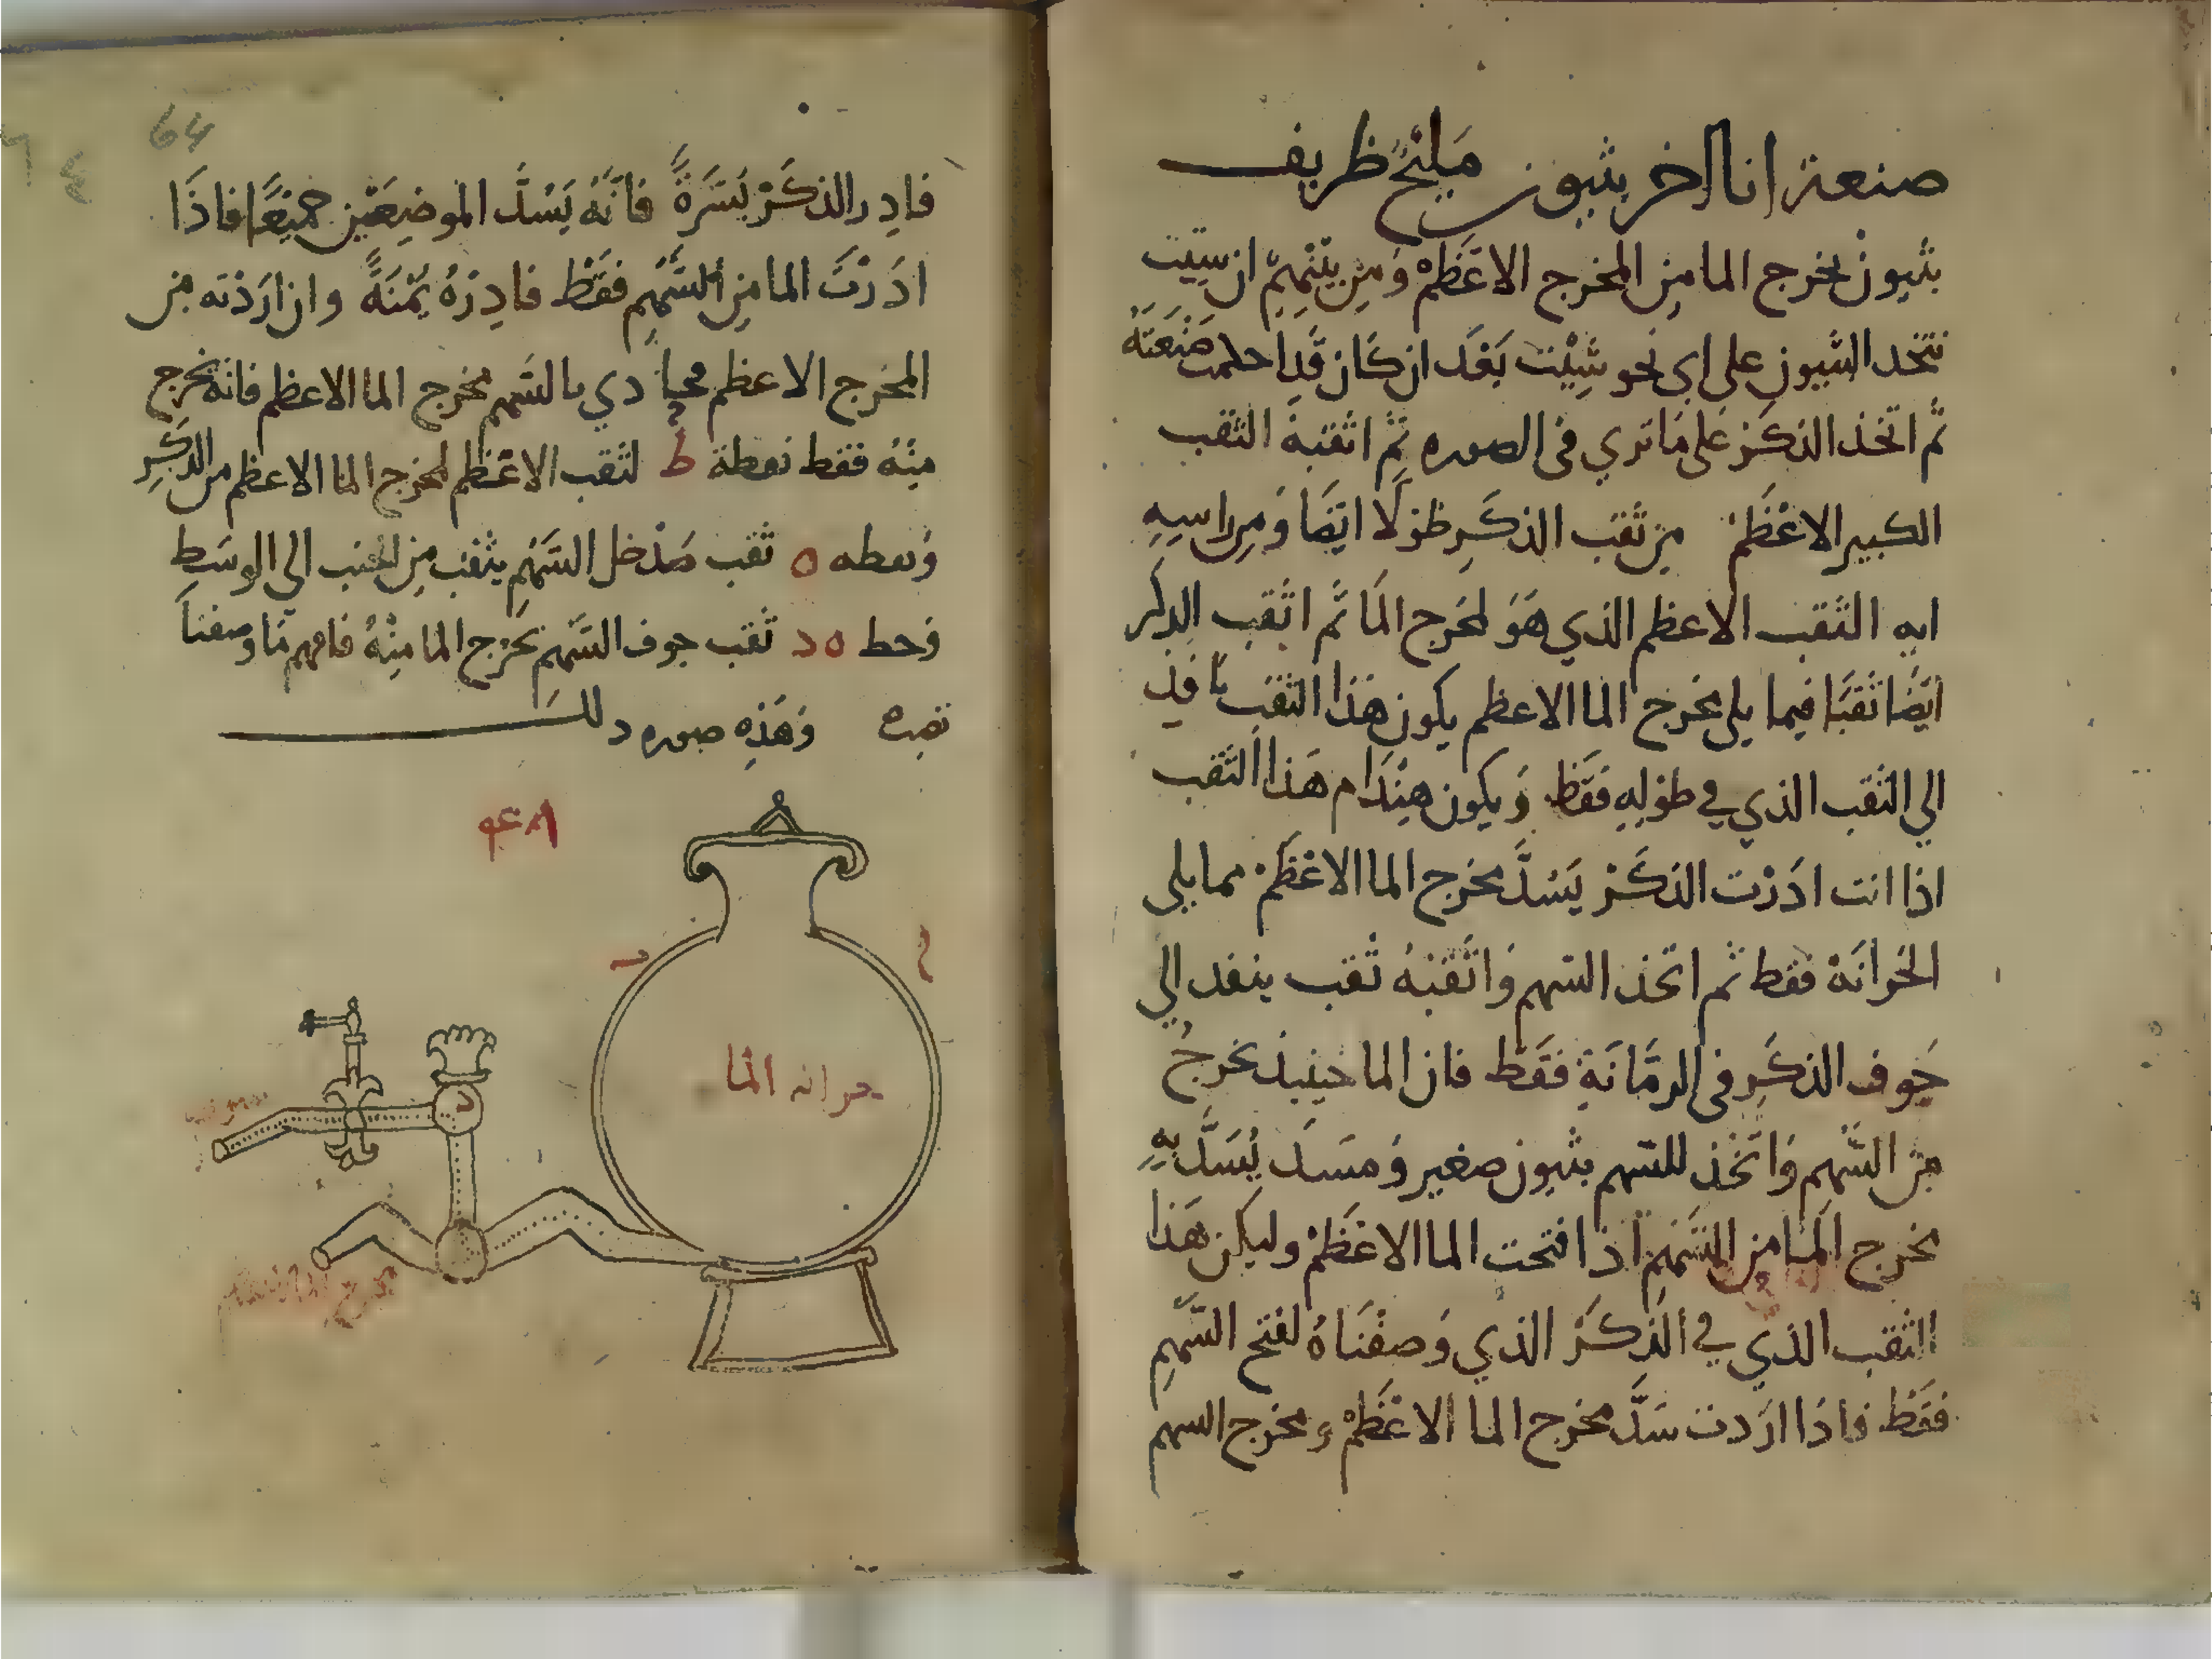 صنعة انا اخر بثيون مليح ظريف
بثيون يخرج الما من المخرج الاعظم ومن بينهم ان شيت
نتخد البثيون على اي نحو شيت بعد ان كان قد احكمت صنعته
ثم اتخذ الذكر على ما تري في الصوره ثم اثقبه الثقب
الكبير الاعظم من ثقب الذكر طولا ايضا ومن راسه
ايه الثقب الاعظم الذي هو لمخرج الما ثم اثقب الذكر
ايضا ثقبا فيما يلي مخرج الما الاعظم يكون هذا الثقب نافد
الي الثقب الذي في طوله فقط ويكون هندام هذا الثقب
اذا انت ادرت الذكر يسد مخرج الما الاعظم مما يلي
الخزانة فقط ثم اتخذ السهم واثقبه ثقب ينفد الي
جوف الذكر في الرمانة فقط فان الما حينيذ يخرج
من السهم واتخذ للسهم بثيون صغير ومسد يسد به
مخرج الما من السهم اذا فتحت الما الاعظم وليكن هذا
الثقب الذي في الذكر الذي وصفناه لفتح السهم
فقط فاذا اردت سد مخرج الما الاعظم ومخرج السهم
64
فادر الذكر يسرة فانه يسد الموضعين جميعا فاذا
ادرت الما من السهم فقط فادره يمنة وان اردته من
المخرج الاعظم محاذي بالسهم مخرج الما الاعظم فانه يخرج
منه فقط نعطة ط لثقب الاعظم لمخرج الما الاعظم من الذكر
ونعطه ه ثقب مدخل السهم يثقب من الجنب الي الوسط
وخط ه د ثقب جوف السهم يخرج الما منه فافهم ما وصفنا
تصبه وهذه صوره ذلك
خزانه الما
د
مخرج الما الاعظم